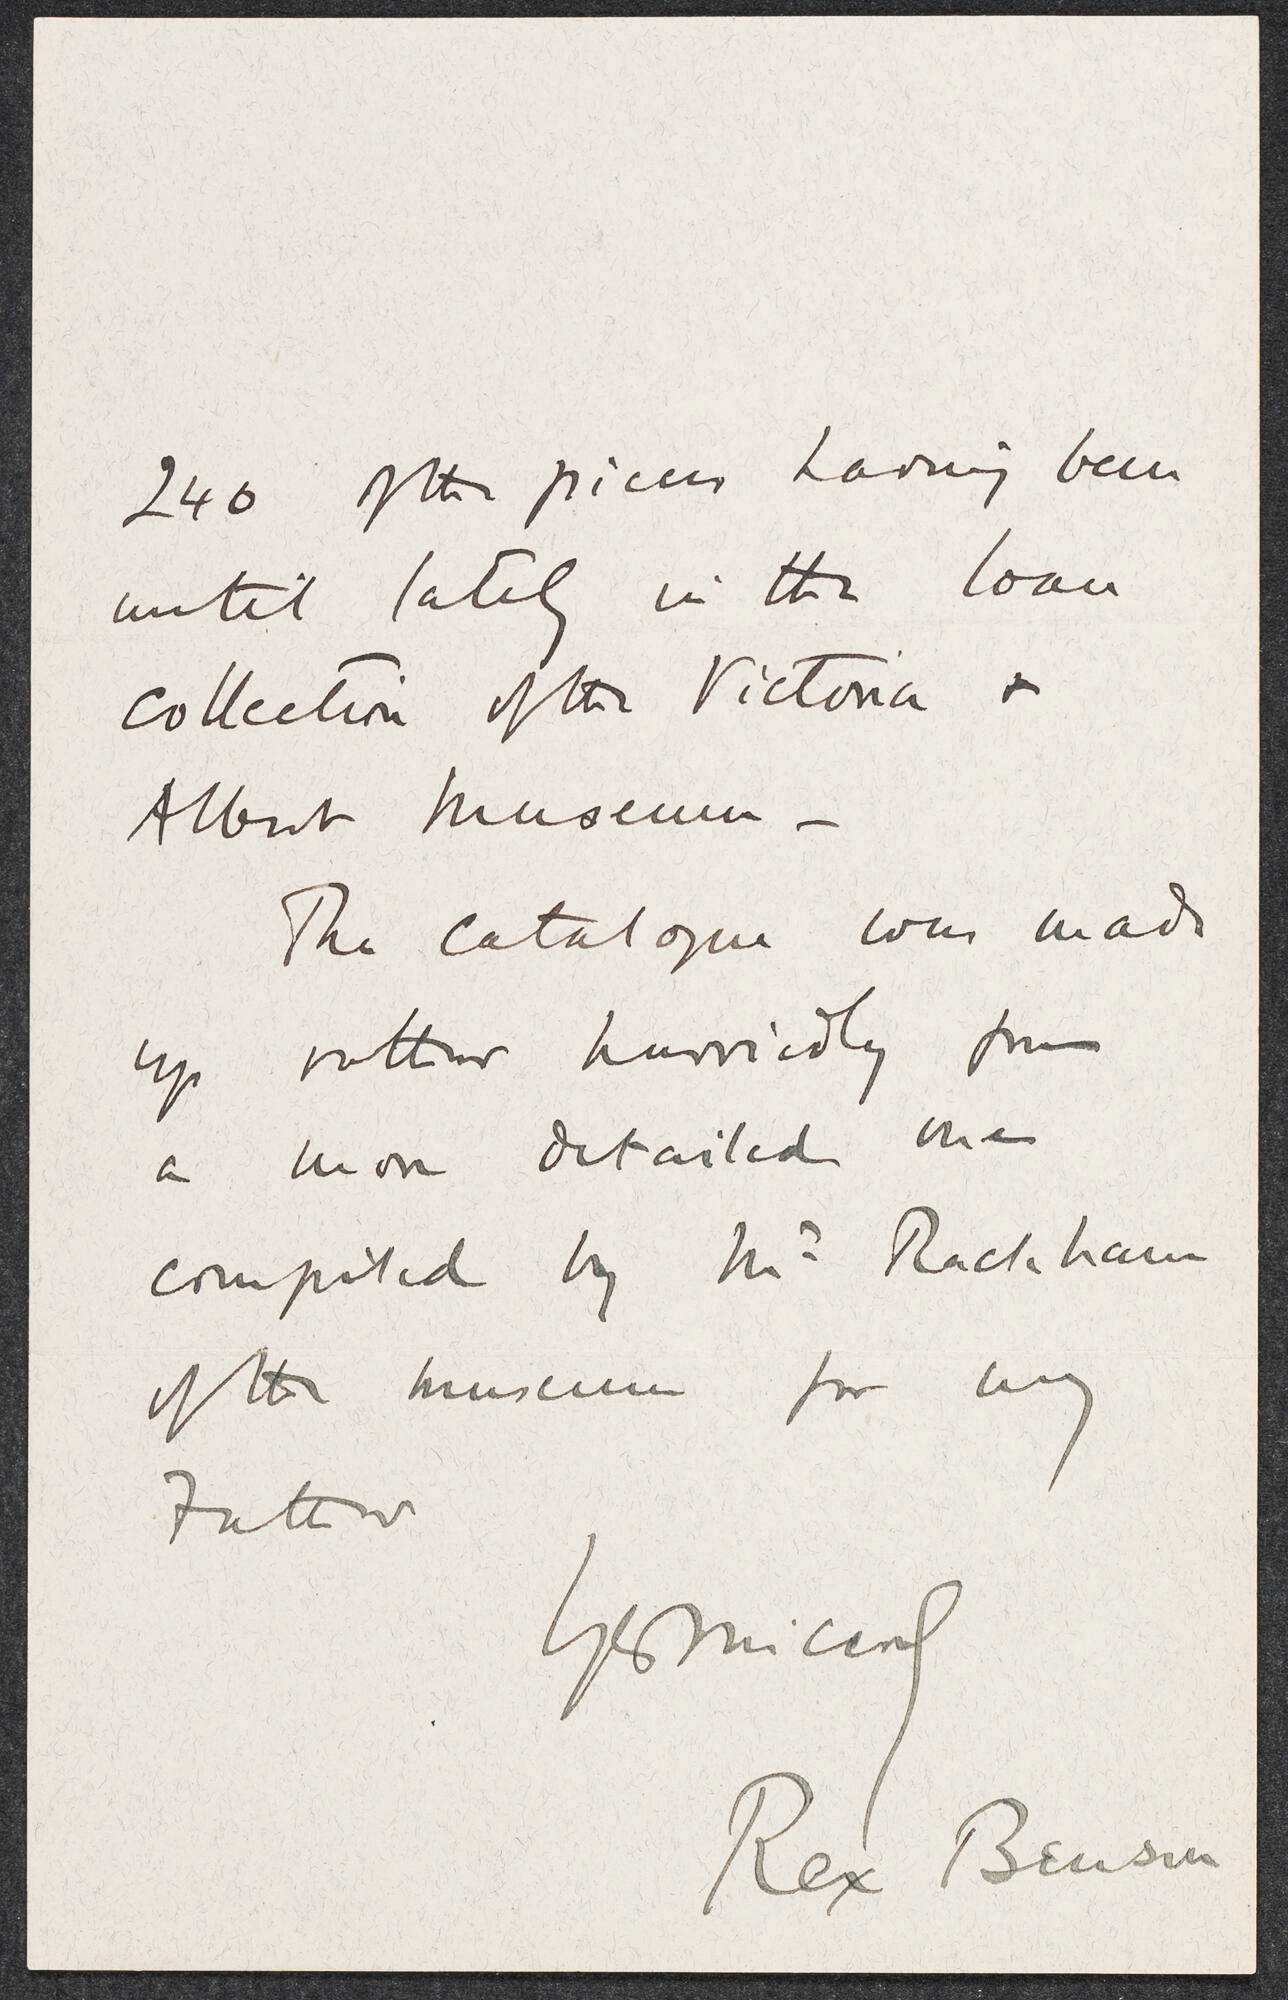 240 of the pieces having been
until lately in the loan
collection of the Victoria &
Albert Museum –
The catalogue was made
up rather hurriedly from
a more detailed one
compiled by Mr Rackham
of the museum for my
Father
Yrs sincerely
Rex Benson